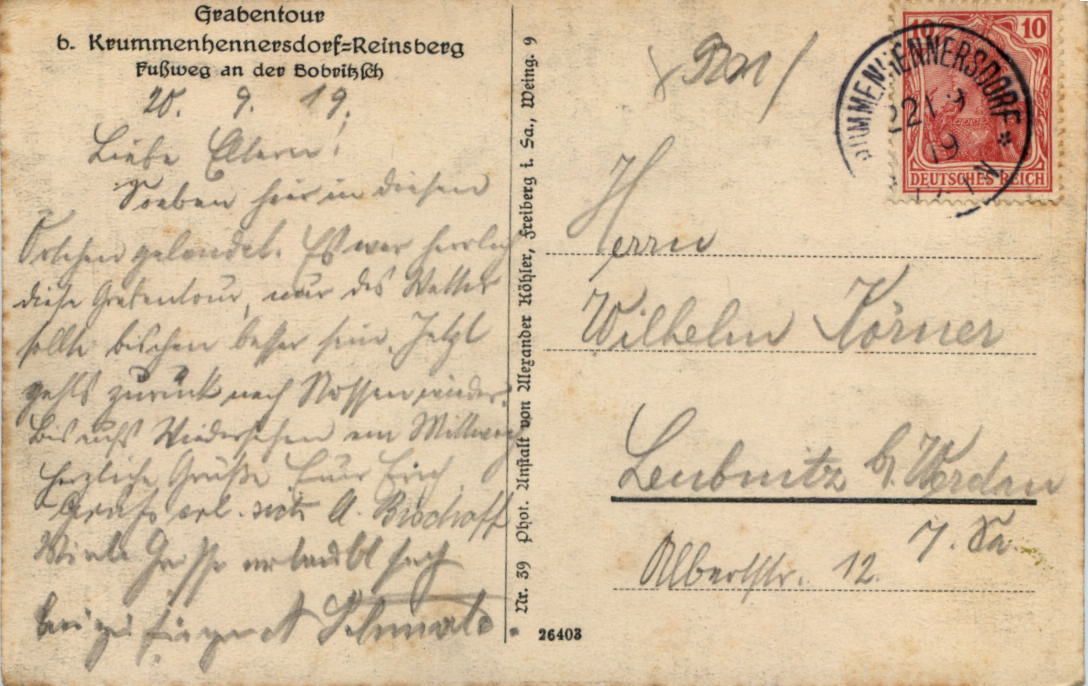 Grabentour
b. Krummenhennersdorf=Reinsberg
Fußweg an der Bobritzsch
20. 9. 19.
Liebe Eltern!
Soeben hier in diesen
Örtchen gelandet. Es war herrlich
diese Grabentour, nur das Wetter
sollte bischen besser sein. Jetzt
gehts zurück nach Nossen wieder.
Bis aufs Wiedersehen am Mittwoch
herzliche Grüße Euer Erich
Gruß erl. sich A. Bischoff
Viele Grüsse erlaubt sich
A.
Nr. 39 Phot. Anstalt von Alexander Köhler, Freiberg i. Sa., Weing. 9
26403
KRUMMENHENNERSDORF
19
10 10
DEUTSCHES REICH
Herrn
Wilhelm Körner
Leubnitz b/Werdau
i. Sa.
Albertstr. 12.